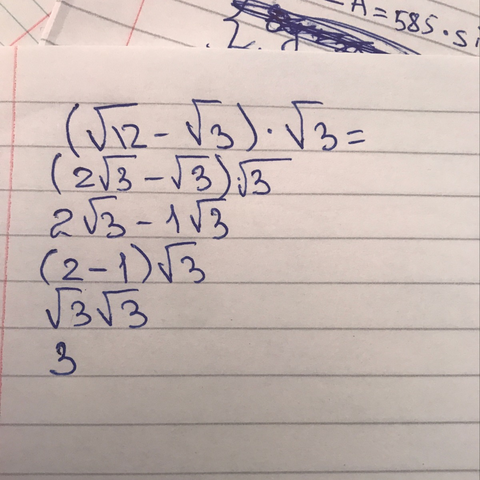 A = 585 · si
(√12 - √3) · √3 =
(2√3 - √3)·√3
2√3 - 1√3
(2 - 1)√3
√3√3
3